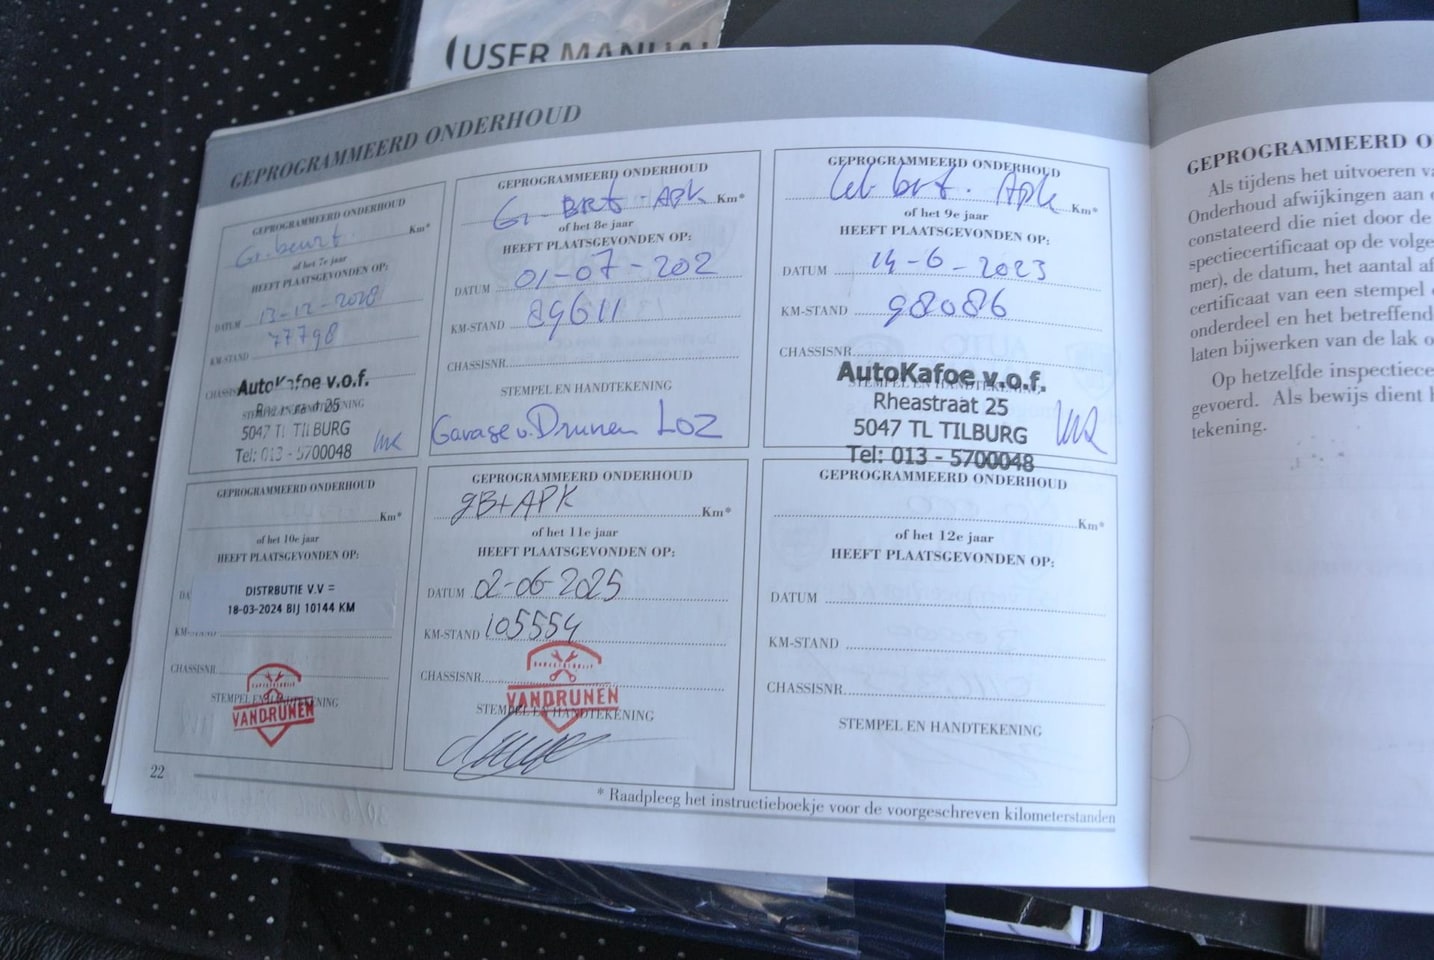 USER MANUAL
GEPROGRAMMEERD ONDERHOUD
GEPROGRAMMEERD ONDERHOUD
Gr. beurt. Km*
of het 7e jaar
HEEFT PLAATSGEVONDEN OP:
DATUM 13-12-2018
KM-STAND 77798
AutoKafoe v.o.f.
STEMPEL EN HANDTEKENING
5047 TL TILBURG
Tel: 013 - 5700048
GEPROGRAMMEERD ONDERHOUD
Gr. BRt. APK Km*
of het 8e jaar
HEEFT PLAATSGEVONDEN OP:
DATUM 01-07-202
KM-STAND 89611
CHASSISNR.
STEMPEL EN HANDTEKENING
Garage v. Drunen LOZ
GEPROGRAMMEERD ONDERHOUD
brt. APK Km*
of het 9e jaar
HEEFT PLAATSGEVONDEN OP:
DATUM 14-6-2023
KM-STAND 98086
CHASSISNR.
AutoKafoe v.o.f.
STEMPEL EN HANDTEKENING
Rheastraat 25
5047 TL TILBURG
Tel: 013 - 5700048
GEPROGRAMMEERD ONDERHOUD
Km*
of het 10e jaar
HEEFT PLAATSGEVONDEN OP:
DISTRBUTIE V.V =
18-03-2024 BIJ 10144 KM
KM-STAND
CHASSISNR.
STEMPEL EN HANDTEKENING
VANDRUNEN
GEPROGRAMMEERD ONDERHOUD
gB+APK Km*
of het 11e jaar
HEEFT PLAATSGEVONDEN OP:
DATUM 02-06-2025
KM-STAND 105554
CHASSISNR.
VANDRUNEN
STEMPEL EN HANDTEKENING
GEPROGRAMMEERD ONDERHOUD
Km*
of het 12e jaar
HEEFT PLAATSGEVONDEN OP:
DATUM
KM-STAND
CHASSISNR.
STEMPEL EN HANDTEKENING
22
* Raadpleeg het instructieboekje voor de voorgeschreven kilometerstanden
GEPROGRAMMEERD O
Als tijdens het uitvoeren va
Onderhoud afwijkingen aan
constateerd die niet door de
spectiecertificaat op de volge
mer), de datum, het aantal af
certificaat van een stempel
onderdeel en het betreffende
laten bijwerken van de lak o
Op hetzelfde inspectiece
gevoerd. Als bewijs dient h
tekening.